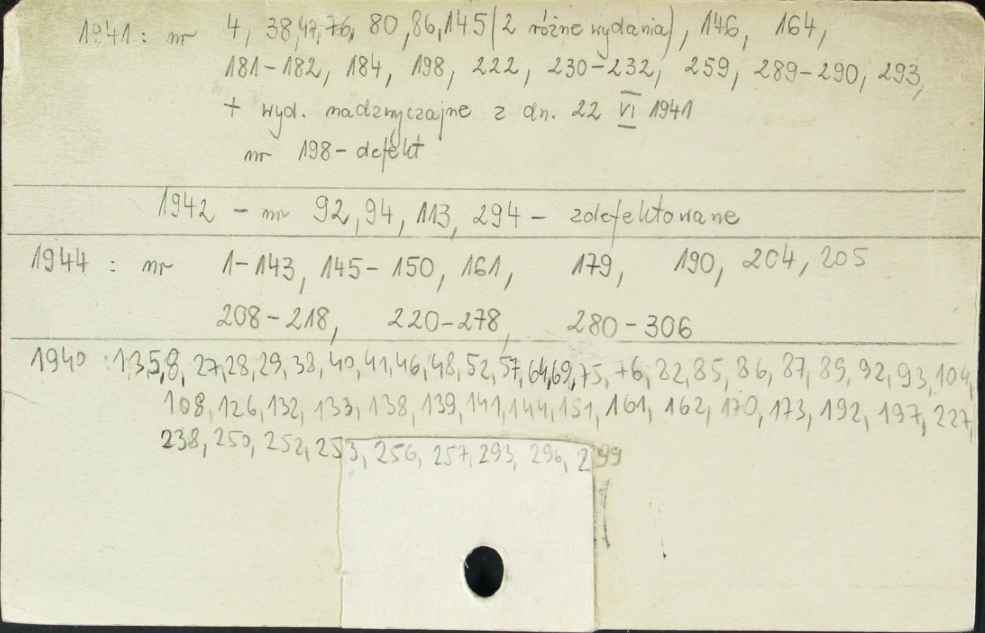 1941 : nr 4, 38, 47, 76, 80, 86, 145 (2 różne wydania), 146, 164,
181-182, 184, 198, 222, 230-232, 259, 289-290, 293,
+ wyd. nadzwyczajne z dn. 22 VI 1941
nr 198 - defekt
1942 - nr 92, 94, 113, 294 - zdefektowane
1944 : nr 1-143, 145-150, 161, 179, 190, 204, 205
208-218, 220-278, 280-306
1940 : 1,3,5,8, 27,28,29,38, 40,41,46,48,52,57,64,69,75, 76, 82,85, 86, 87, 89, 92, 93, 104,
108, 126, 132, 133, 138, 139, 141, 144, 151, 161, 162, 170, 173, 192, 197, 227,
238, 250, 252, 253, 256, 257, 293, 296, 299